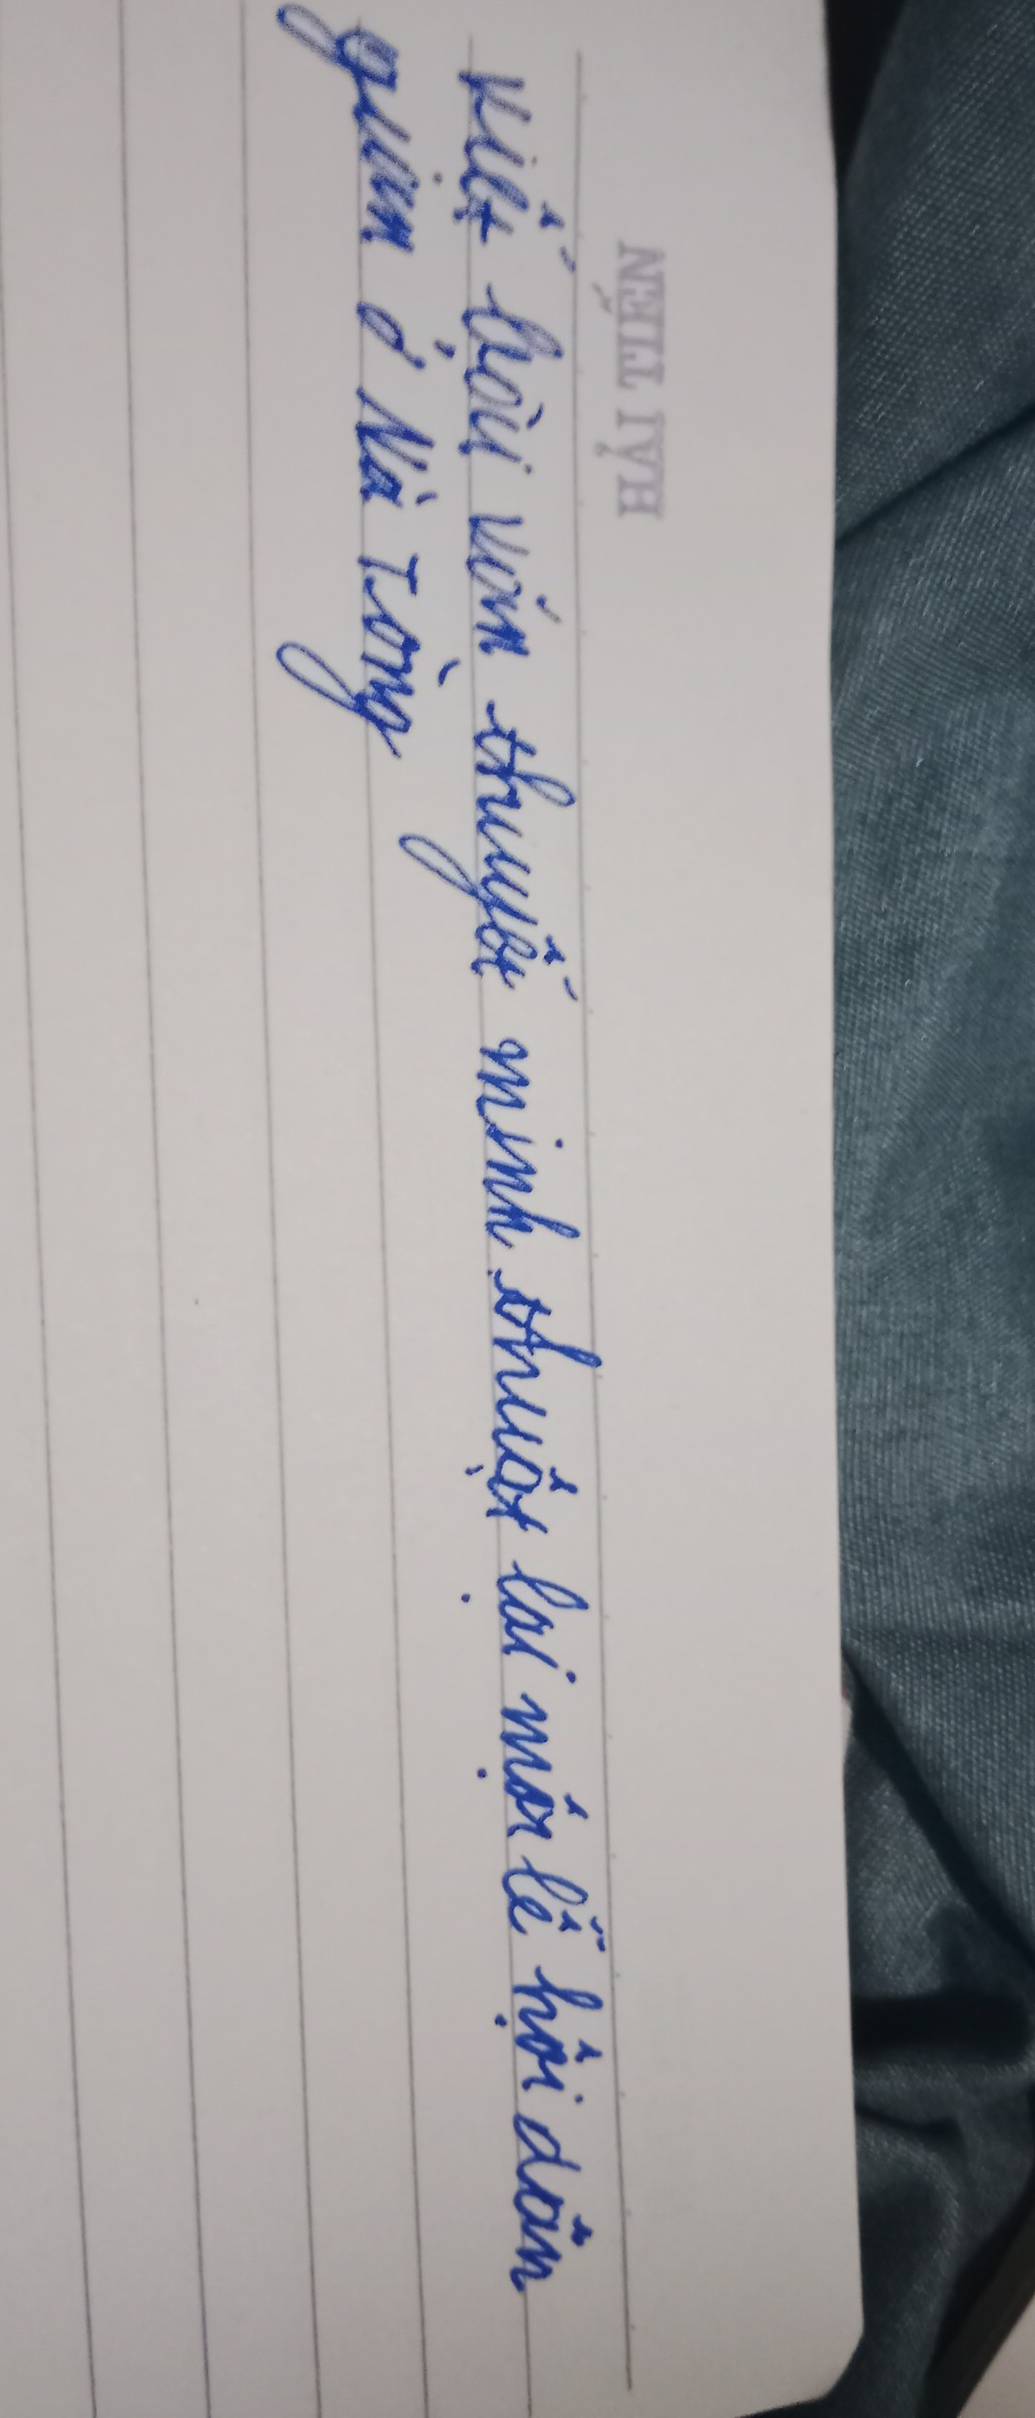 HẢI TIẾN
Viết bài văn thuyết minh thuật lại một lễ hội dân
gian ở Nà Tòng